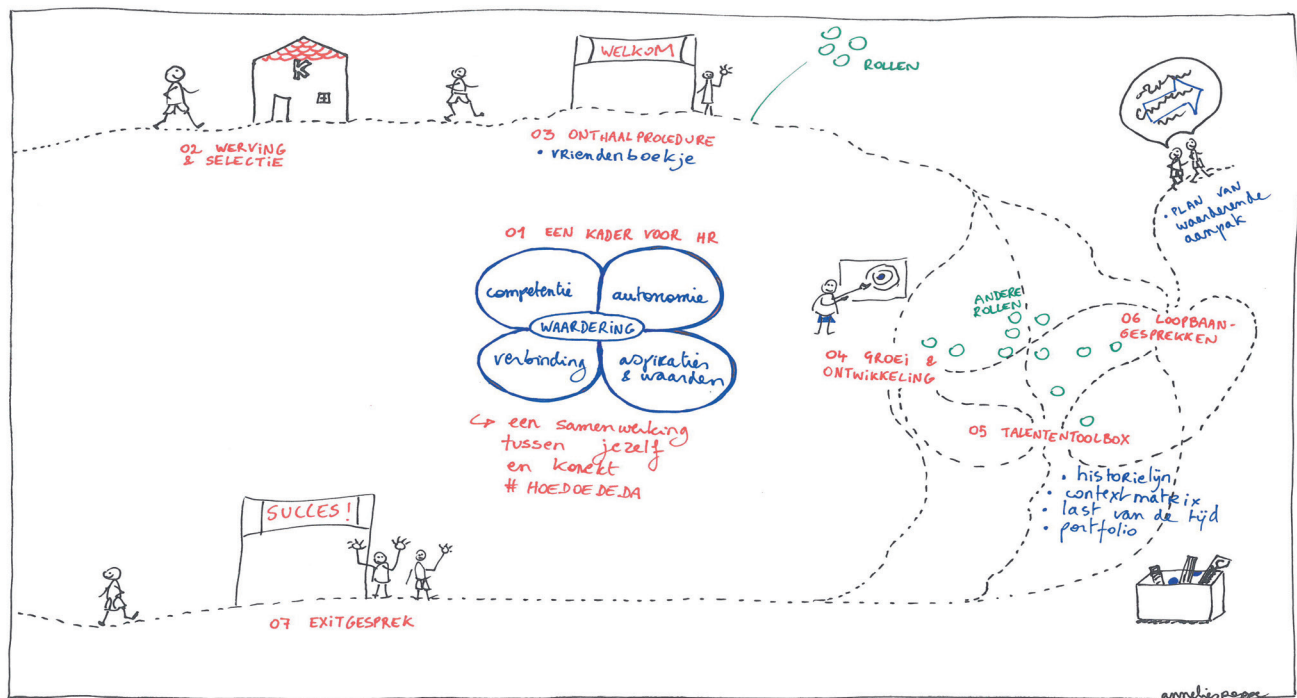 K
WELKOM
ROLLEN
02 WERVING
& SELECTIE
03 ONTHAALPROCEDURE
• vriendenboekje
• PLAN VAN
waarderende
aanpak
01 EEN KADER VOOR HR
competentie
autonomie
WAARDERING
verbinding
aspiraties
& waarden
↳ een samenwerking
tussen jezelf
en konekt
# HOEDOEDEDA
ANDERE
ROLLEN
04 GROEI &
ONTWIKKELING
06 LOOPBAAN-
GESPREKKEN
05 TALENTENTOOLBOX
• historielijn
• contextmatrix
• last van de tijd
• portfolio
SUCCES!
07 EXITGESPREK